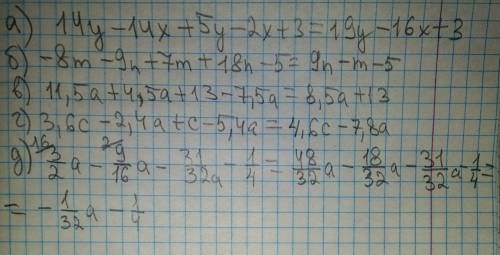 а) 14y-14x+5y-2x+3=19y-16x+3
б) -8m-9n+7m+18n-5=9n-m-5
в) 11,5a+4,5a+13-7,5a=8,5a+13
г) 3,6c-2,4a+c-5,4a=4,6c-7,8a
д) 16 3/2 a - 2 9/16 a - 31/32a - 1/4 = 48/32 a - 18/32 a - 31/32 a - 1/4 =
= - 1/32 a - 1/4